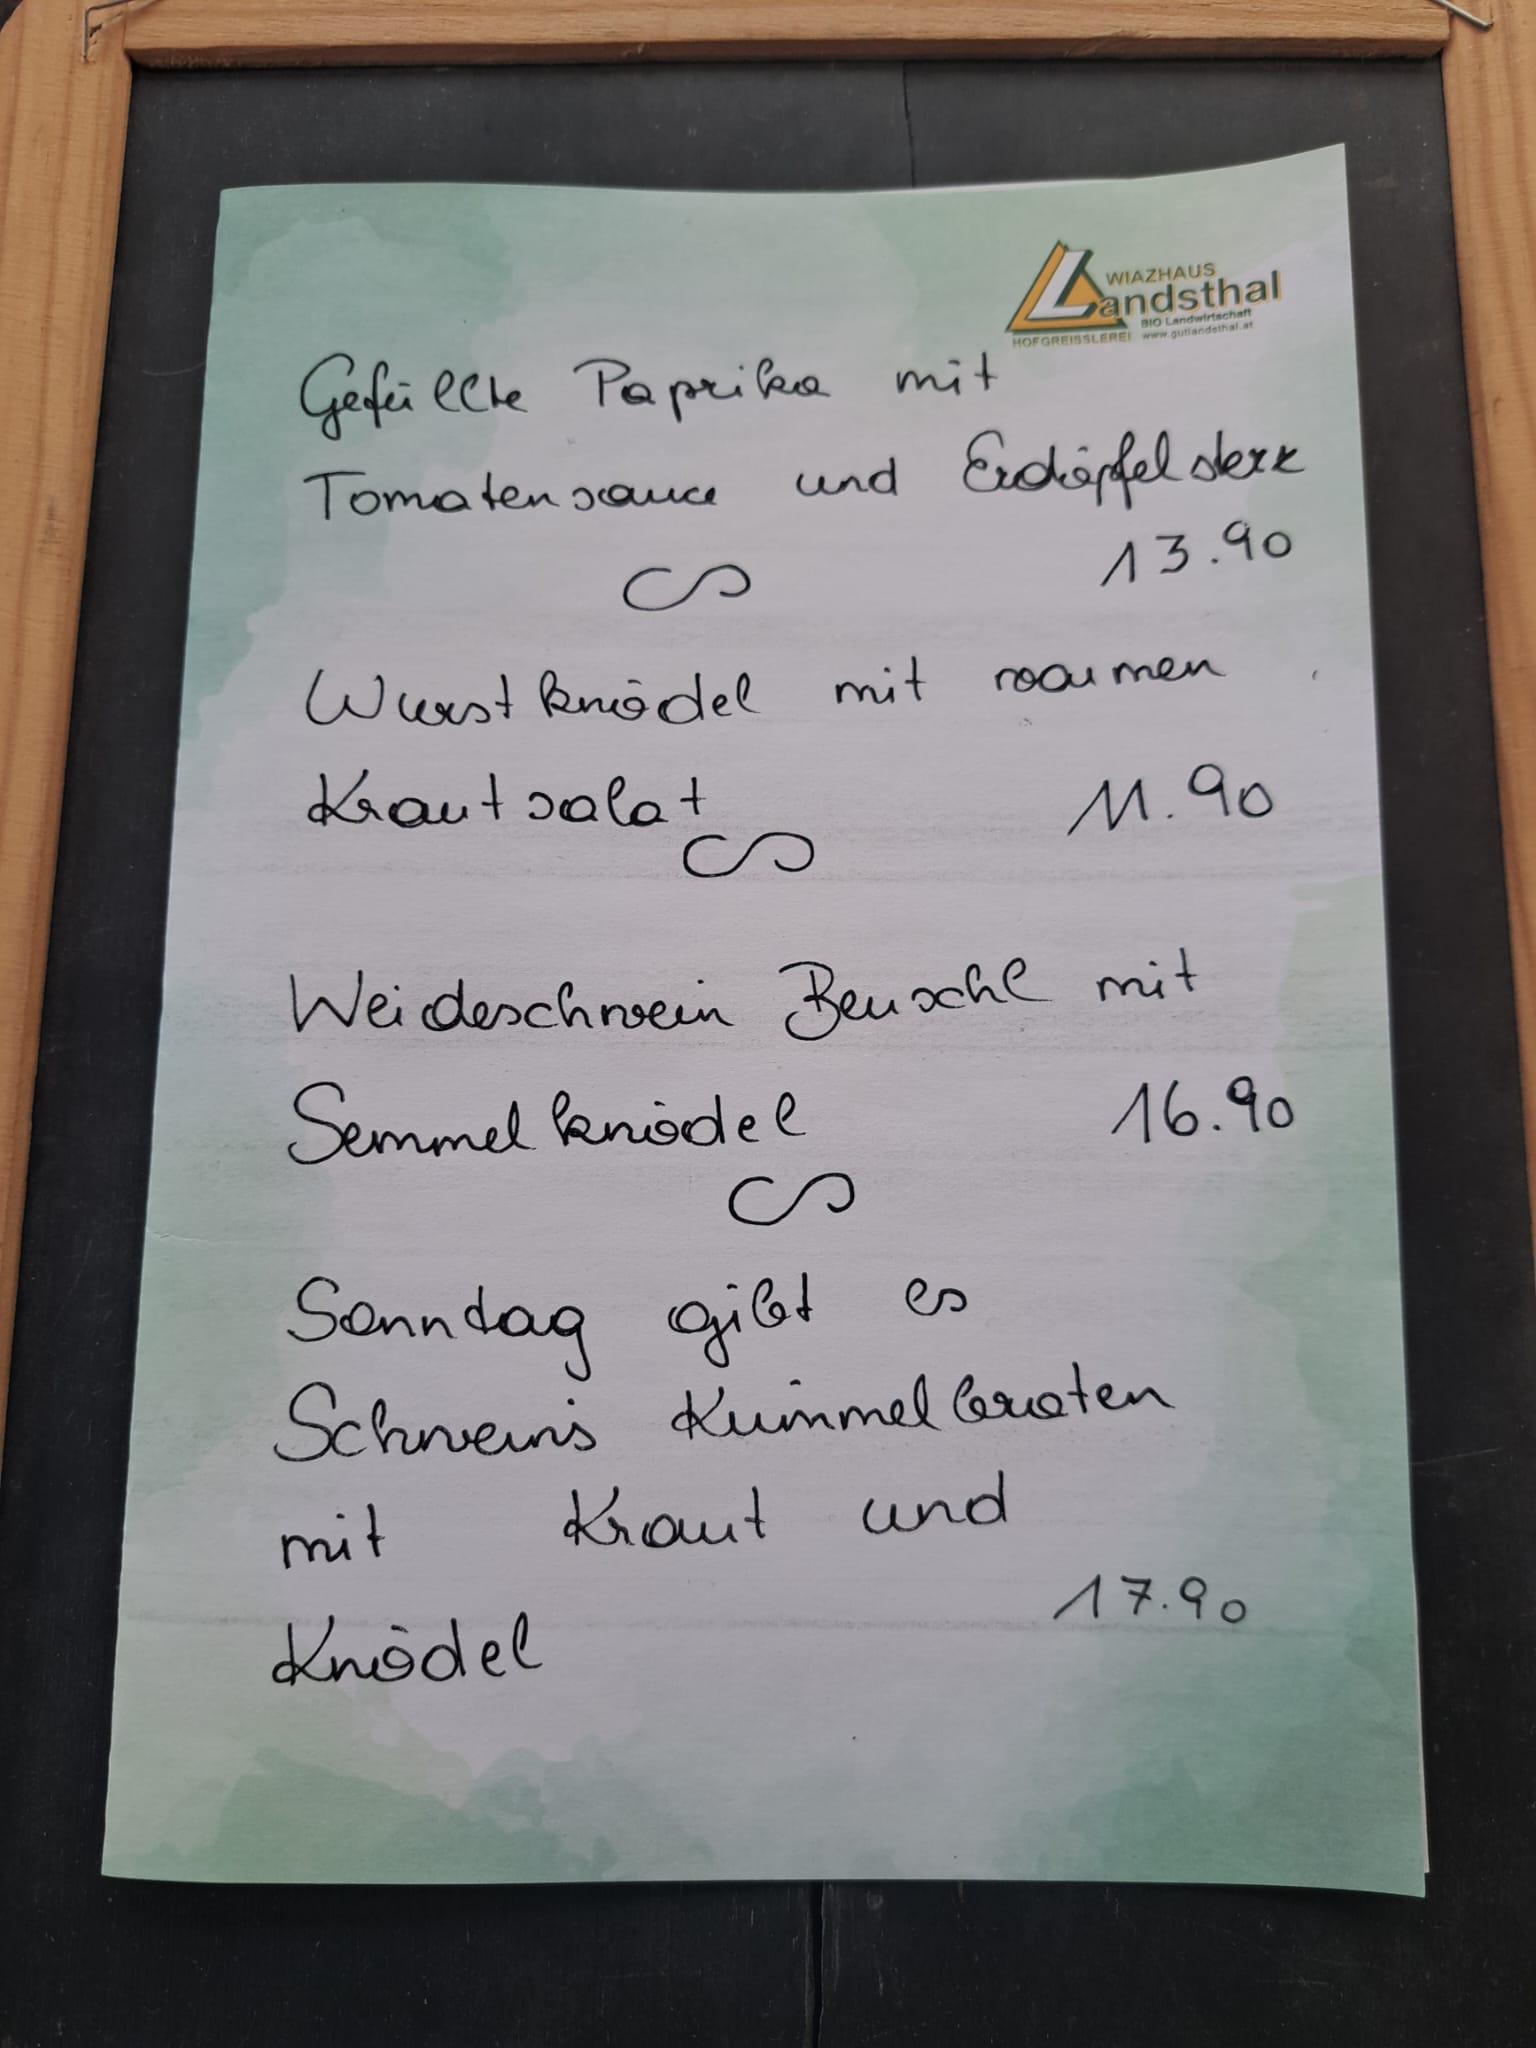 WIAZHAUS
Landsthal
BIO Landwirtschaft
HOFGREISSLEREI www.gutlandsthal.at
Gefüllte Paprika mit
Tomatensauce und Erdäpfelsterz
13.90
Wurstknödel mit warmen
Krautsalat 11.90
Weideschwein Beuschl mit
Semmelknödel 16.90
Sonntag gibt es
Schweins Kümmelbraten
mit Kraut und
17.90
Knödel